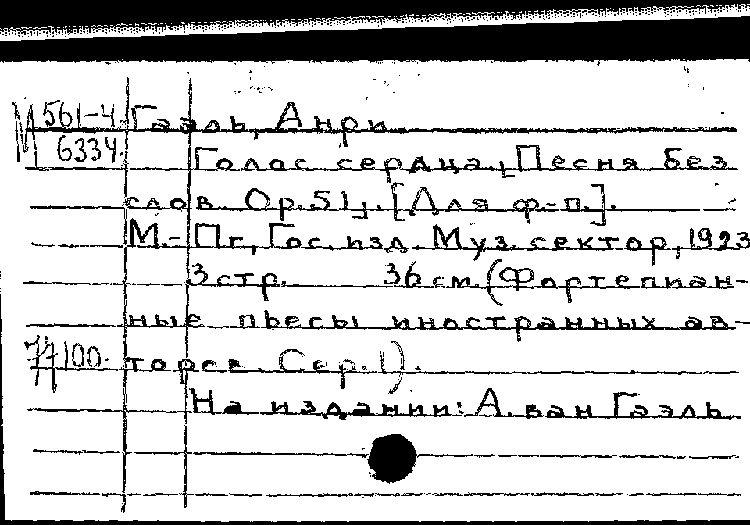 М 561-4 Гаэль, Анри
6334 Голос сердца. Песня без
слов. Ор. 51. [Для ф.-п.].
М.-Пг, Гос. изд. Муз. сектор, 1923
3 стр. 36 см. (Фортепиан-
ные пьесы иностранных ав-
77100 торов. Сер. 1).
На издании: А. ван Гаэль